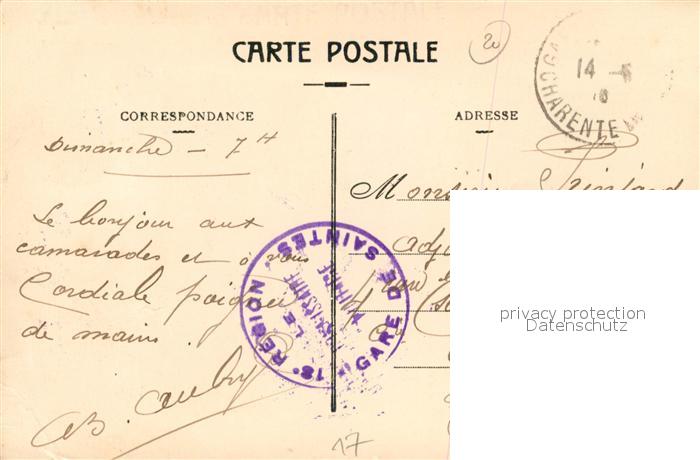 CARTE POSTALE
20
14
CHARENTE
CORRESPONDANCE
ADRESSE
Dimanche – 7H
Le bonjour aux
camarades et à vous
Cordiale poignée
de mains
Monsieur
18e RÉGION
GARE DE SAINTES
LE
COMMISSAIRE
MILITAIRE
17
privacy protection
Datenschutz